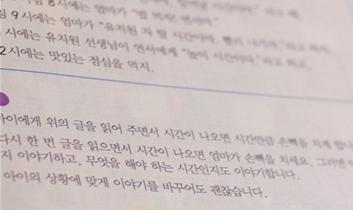 시에는 엄마가
9시에는 엄마가 "유치원 차 탈 시간이야. 빨리 나가자."
시에는 유치원 선생님이 연서에게 "놀이 시간이다."
2시에는 맛있는 점심을 먹지.
아이에게 위의 글을 읽어 주면서 시간이 나오면 시간만큼 손뼉을 치게 합니
다시 한 번 글을 읽으면서 시간이 나오면 엄마가 손뼉을 치세요. 그러면
지 이야기하고, 무엇을 해야 하는 시간인지도 이야기합니다.
아이의 상황에 맞게 이야기를 바꾸어도 괜찮습니다.